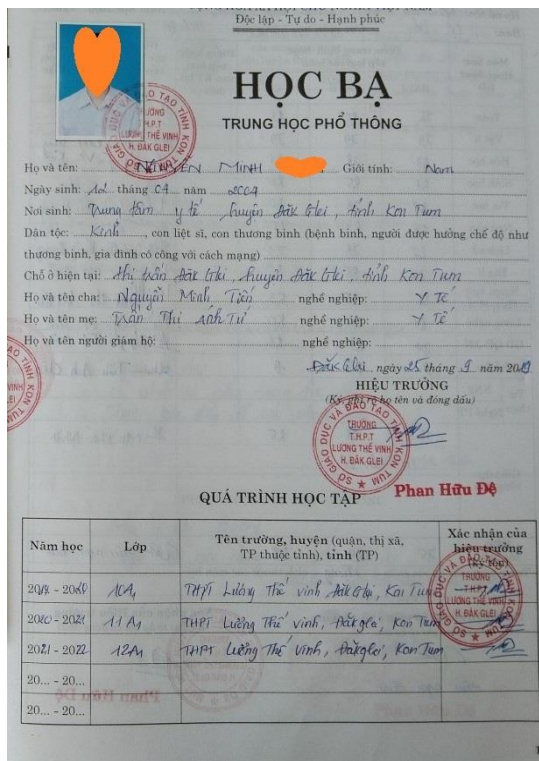 CỘNG HÒA XÃ HỘI CHỦ NGHĨA VIỆT NAM
Độc lập - Tự do - Hạnh phúc
HỌC BẠ
TRUNG HỌC PHỔ THÔNG
SỞ GIÁO DỤC VÀ ĐÀO TẠO TỈNH KON TUM
TRƯỜNG
T.H.P.T
LƯƠNG THẾ VINH
H. ĐĂK GLEI
Họ và tên: NGUYỄN MINH Giới tính: Nam
Ngày sinh: 12 tháng 04 năm 2004
Nơi sinh: Trung tâm y tế huyện Đăk Glei, tỉnh Kon Tum
Dân tộc: Kinh, con liệt sĩ, con thương binh (bệnh binh, người được hưởng chế độ như
thương binh, gia đình có công với cách mạng)
Chỗ ở hiện tại: Thị trấn Đăk Glei, huyện Đăk Glei, tỉnh Kon Tum
Họ và tên cha: Nguyễn Minh Tiến nghề nghiệp: Y Tế
Họ và tên mẹ: Trần Thị Anh Tú nghề nghiệp: Y Tế
Họ và tên người giám hộ: nghề nghiệp:
Đăk Glei, ngày 25 tháng 9 năm 2019
HIỆU TRƯỞNG
(Ký, ghi rõ họ tên và đóng dấu)
SỞ GIÁO DỤC VÀ ĐÀO TẠO TỈNH KON TUM
TRƯỜNG
T.H.P.T
LƯƠNG THẾ VINH
H. ĐĂK GLEI
Phan Hữu Đệ
QUÁ TRÌNH HỌC TẬP
Năm học Lớp Tên trường, huyện (quận, thị xã, TP thuộc tỉnh), tỉnh (TP) Xác nhận của hiệu trưởng
2019 - 2020 10A1 THPT Lương Thế Vinh, Đăk Glei, Kon Tum
2020 - 2021 11A1 THPT Lương Thế Vinh, Đăk glei, Kon Tum
2021 - 2022 12A1 THPT Lương Thế Vinh, Đăk glei, Kon Tum
20... - 20...
20... - 20...